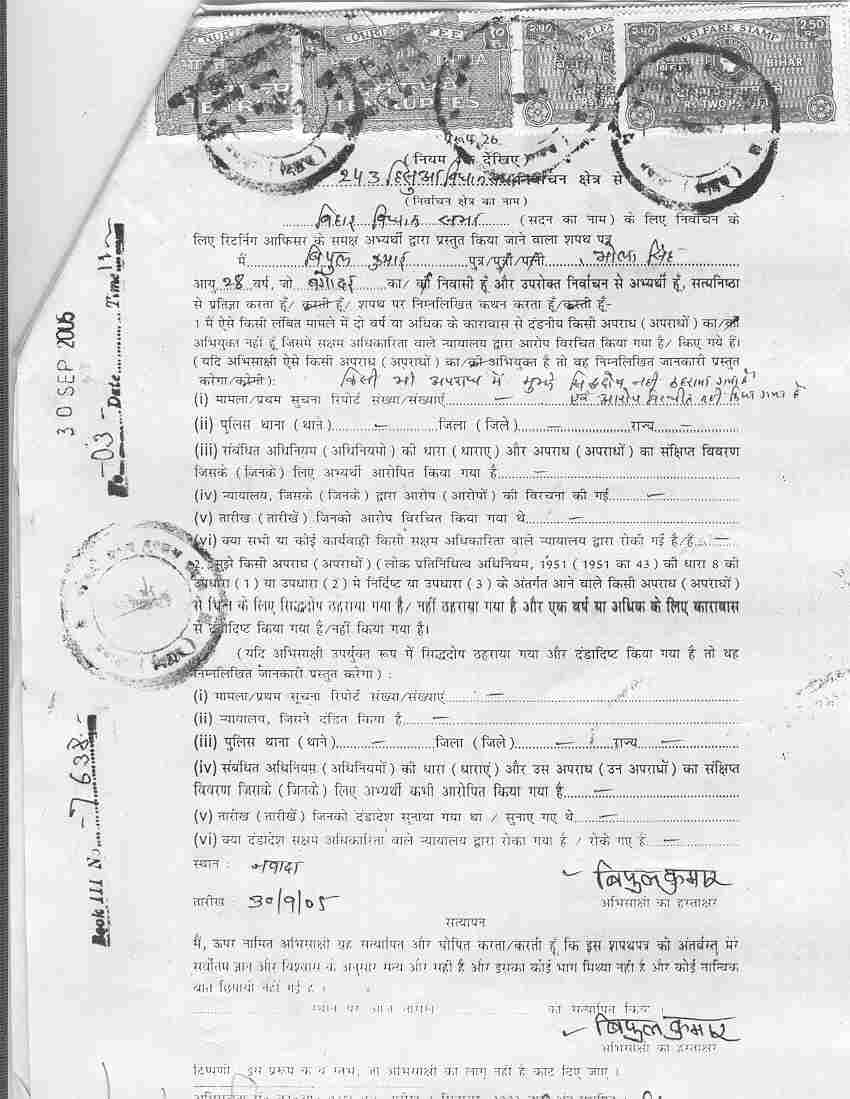 COURT FEE
INDIA
TEN RUPEES
WELFARE STAMP
2.50
BIHAR
प्ररूप 26
(नियम देखिए)
243 हिसुआ विधान निर्वाचन क्षेत्र से
(निर्वाचन क्षेत्र का नाम)
बिहार विधान सभा (सदन का नाम) के लिए निर्वाचन के
लिए रिटर्निंग आफिसर के समक्ष अभ्यर्थी द्वारा प्रस्तुत किया जाने वाला शपथ पत्र
मैं बिपुल कुमार पुत्र/पुत्री/पत्नी भोला सिंह
आयु 28 वर्ष, जो का/की निवासी हूँ और उपरोक्त निर्वाचन से अभ्यर्थी हूँ, सत्यनिष्ठा
से प्रतिज्ञा करता हूँ/ करती हूँ/ शपथ पर निम्नलिखित कथन करता हूँ/करती हूँ:-
1 मैं ऐसे किसी लंबित मामले में दो वर्ष या अधिक के कारावास से दंडनीय किसी अपराध (अपराधों) का/की
अभियुक्त नहीं हूँ जिसमें सक्षम अधिकारिता वाले न्यायालय द्वारा आरोप विरचित किया गया है/ किए गये हैं।
(यदि अभिसाक्षी ऐसे किसी अपराध (अपराधों) का/की अभियुक्त है तो वह निम्नलिखित जानकारी प्रस्तुत
करेगा/करेगी): किसी भी अपराध में मुझे सिद्धदोष नहीं ठहराया गया है
(i) मामला/प्रथम सूचना रिपोर्ट संख्या/संख्याएं – एवं आरोप विरचित नहीं किया गया है
(ii) पुलिस थाना (थाने) – जिला (जिले) – राज्य –
(iii) संबंधित अधिनियम (अधिनियमों) की धारा (धाराए) और अपराध (अपराधों) का संक्षिप्त विवरण
जिसके (जिनके) लिए अभ्यर्थी आरोपित किया गया है –
(iv) न्यायालय, जिसके (जिनके) द्वारा आरोप (आरोपों) की विरचना की गई –
(v) तारीख (तारीखें) जिनको आरोप विरचित किया गया थे –
(vi) क्या सभी या कोई कार्यवाही किसी सक्षम अधिकारिता वाले न्यायालय द्वारा रोकी गई है/हैं –
2. मुझे किसी अपराध (अपराधों) (लोक प्रतिनिधित्व अधिनियम, 1951 (1951 का 43) की धारा 8 की
उपधारा (1) या उपधारा (2) मे निर्दिष्ट या उपधारा (3) के अंतर्गत आने वाले किसी अपराध (अपराधों)
से भिन्न के लिए सिद्धदोष ठहराया गया है/ नहीं ठहराया गया है और एक वर्ष या अधिक के लिए कारावास
से दंडादिष्ट किया गया है/नहीं किया गया है।
(यदि अभिसाक्षी उपर्युक्त रूप में सिद्धदोष ठहराया गया और दंडादिष्ट किया गया है तो वह
निम्नलिखित जानकारी प्रस्तुत करेगा) :
(i) मामला/प्रथम सूचना रिपोर्ट संख्या/संख्याएं –
(ii) न्यायालय, जिसने दंडित किया है –
(iii) पुलिस थाना (थाने) – जिला (जिले) – राज्य –
(iv) संबंधित अधिनियम (अधिनियमों) की धारा (धाराएं) और उस अपराध (उन अपराधों) का संक्षिप्त
विवरण जिसके (जिनके) लिए अभ्यर्थी कभी आरोपित किया गया है –
(v) तारीख (तारीखें) जिनको दंडादेश सुनाया गया था / सुनाए गए थे –
(vi) क्या दंडादेश सक्षम अधिकारिता वाले न्यायालय द्वारा रोका गया है / रोके गए हैं –
स्थान : नवादा
बिपुल कुमार
तारीख : 30/9/05
अभिसाक्षी का हस्ताक्षर
सत्यापन
मैं, ऊपर नामित अभिसाक्षी यह सत्यापित और घोषित करता/करती हूँ कि इस शपथपत्र की अंतर्वस्तु मेरे
सर्वोत्तम ज्ञान और विश्वास के अनुसार सत्य और सही है और इसका कोई भाग मिथ्या नहीं है और कोई तात्विक
बात छिपायी नहीं गई है ।
स्थान पर आज तारीख को सत्यापित किया
बिपुल कुमार
अभिसाक्षी का हस्ताक्षर
टिप्पणी : इस प्ररूप के वे स्तंभ, जो अभिसाक्षी को लागू नहीं है काट दिए जाए ।
30 SEP 2005
No. 03 Date Time
Book III No. 7638